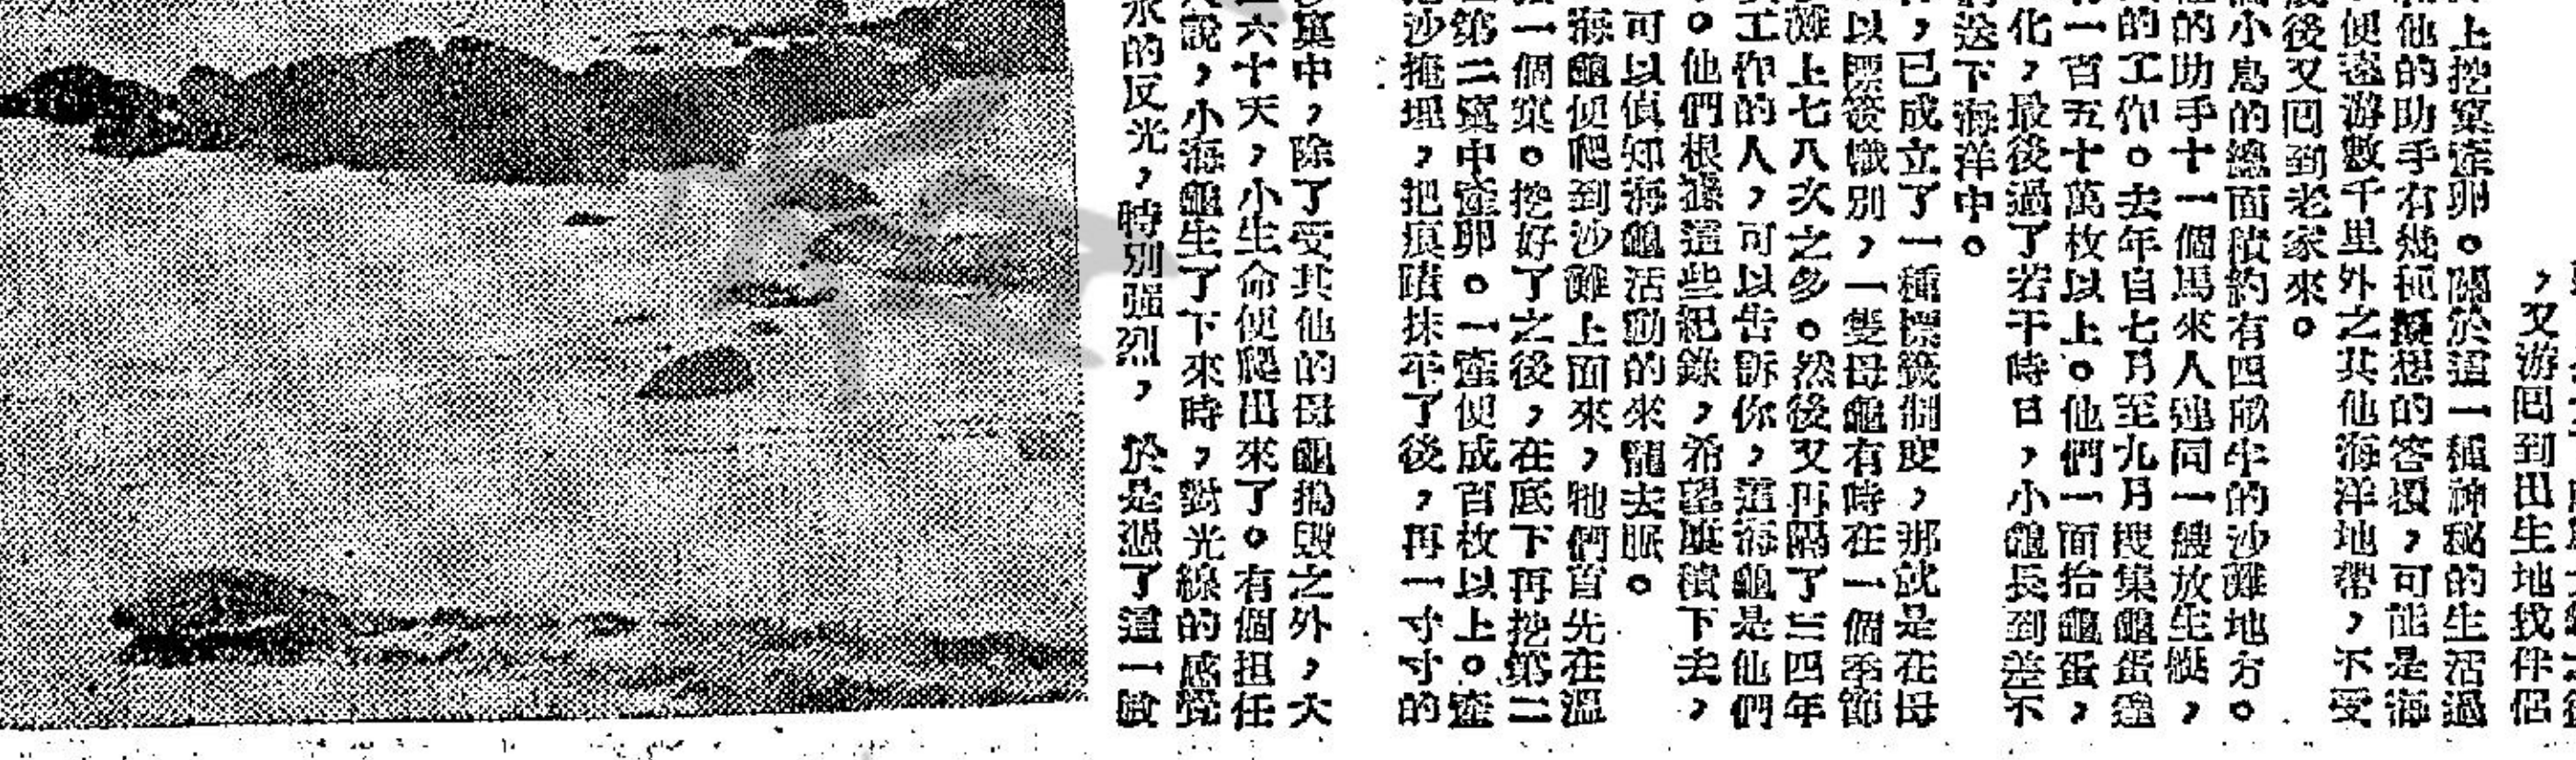 ，又游囘到出生地找伴侶
上挖窠產卵。關於這一種神秘的生活過
他的助手有幾種擬想的答覆，可能是海
便遠游數千里外之其他海洋地帶，不受
後又囘到老家來。
小島的總面積約有四畝半的沙灘地方。
的助手十一個馬來人連同一艘放生艇，
的工作。去年自七月至九月搜集龜蛋達
一百五十萬枚以上。他們一面拾龜蛋，
化，最後過了若干時日，小龜長到差不
送下海洋中。
，已成立了一種標籤制度，那就是在母
以標簽幟別，一隻母龜有時在一個季節
灘上七八次之多。然後又再隔了三四年
工作的人，可以告訴你，這海龜是他們
。他們根據這些紀錄，希望積下去，
可以偵知海龜活動的來龍去脈。
海龜便爬到沙灘上面來，牠們首先在溫
一個窠。挖好了之後，在底下再挖第二
第二窠中產卵。一產便成百枚以上。產
沙掩埋，把痕蹟抹平了後，再一寸寸的
窠中，除了受其他的母龜搗毀之外，大
六十天，小生命便爬出來了。有個担任
說，小海龜生了下來時，對光線的感覺
水的反光，特別强烈，於是憑了這一